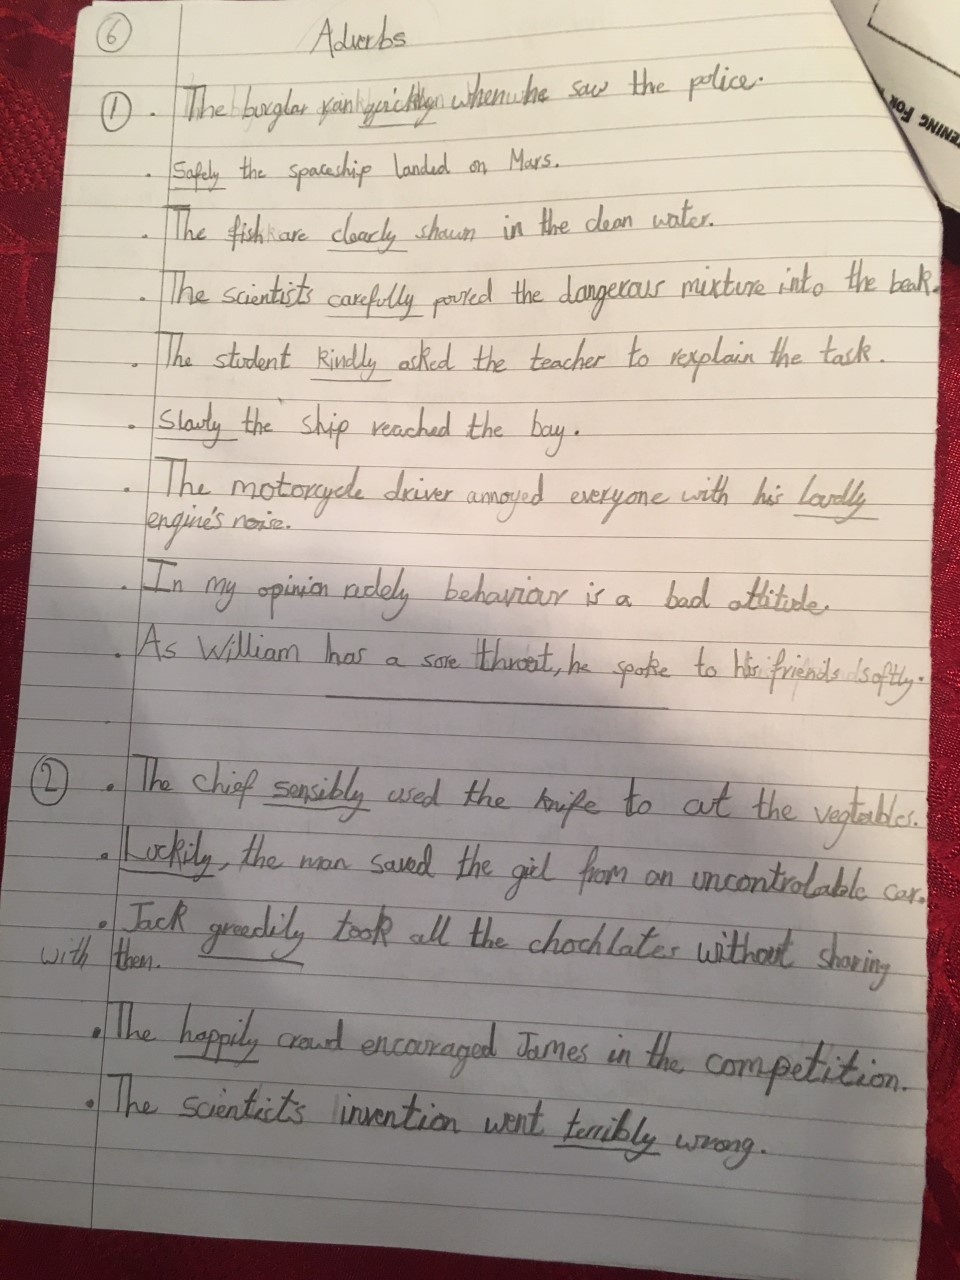 6
Adverbs
1 . The burglar ran quickly when he saw the police.
. Safely the spaceship landed on Mars.
. The fish are clearly shawn in the clean water.
. The scientists carefully poured the dangerous mixture into the beak.
. The student kindly asked the teacher to rexplain the task.
. Slowly the ship reached the bay.
. The motorcycle driver annoyed everyone with his loudly
engine's noise.
. In my opinion rudely behaviour is a bad attitude.
. As William has a sore throat, he spoke to his friends softly.
2 . The chief sensibly used the knife to cut the vegtables.
. Luckily, the man saved the girl from an uncontrolable car.
. Jack greedily took all the chochlates without sharing
with them.
. The happily crowd encouraged James in the competition.
. The scientists invention went terribly wrong.
ENING FOR